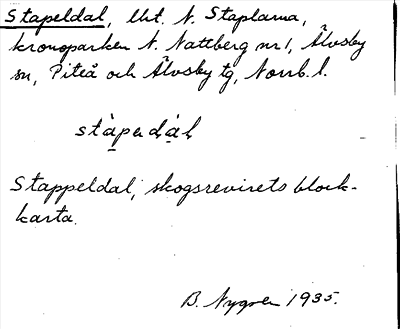 Stapeldal, lht. N. Staplarna,
kronoparken N. Nattberg nr 1, Älvsby
sn, Piteå och Älvsby tg, Norrb. l.
Stappeldal, skogsrevirets block-
karta.
B. Nygren 1935.